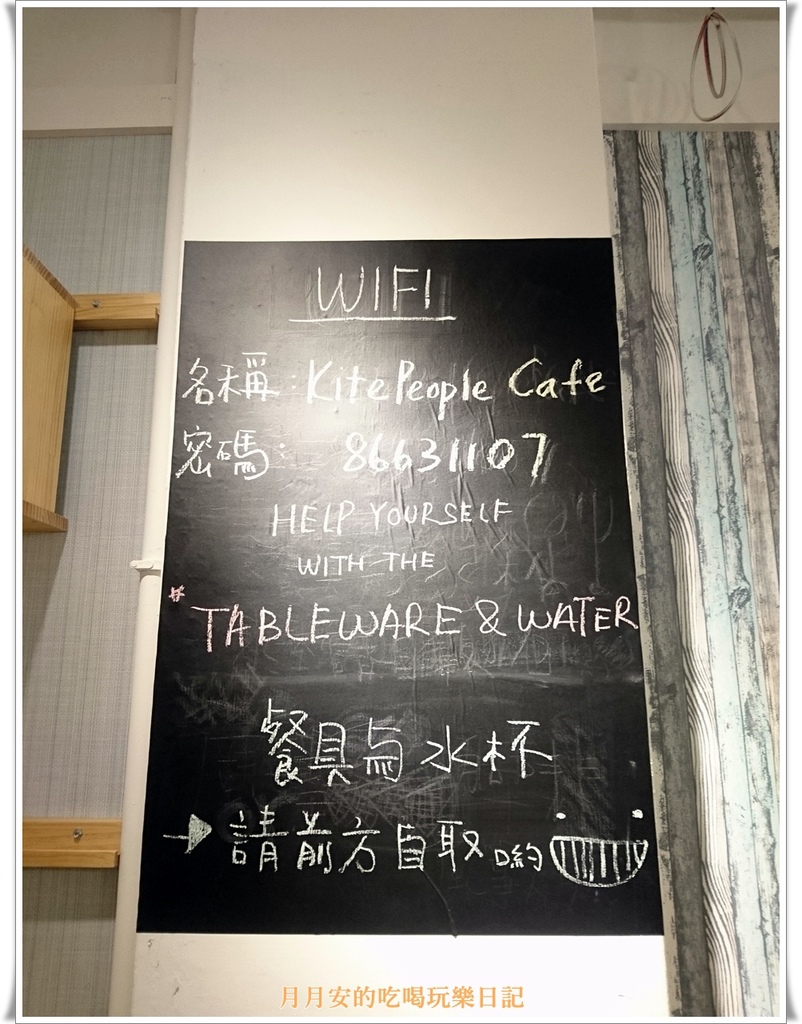 WIFI
名稱：KitePeople Cafe
密碼： 86631107
HELP YOURSELF
WITH THE
* TABLEWARE & WATER
餐具与水杯
→請前方自取喲
月月安的吃喝玩樂日記